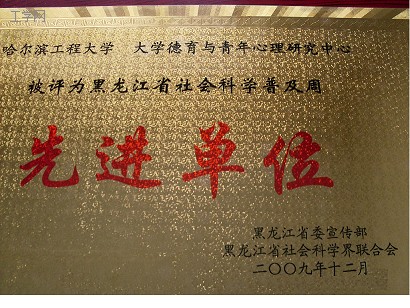 工学网
哈尔滨工程大学 大学德育与青年心理研究中心
被评为黑龙江省社会科学普及周
先进单位
黑龙江省委宣传部
黑龙江省社会科学界联合会
二〇〇九年十二月